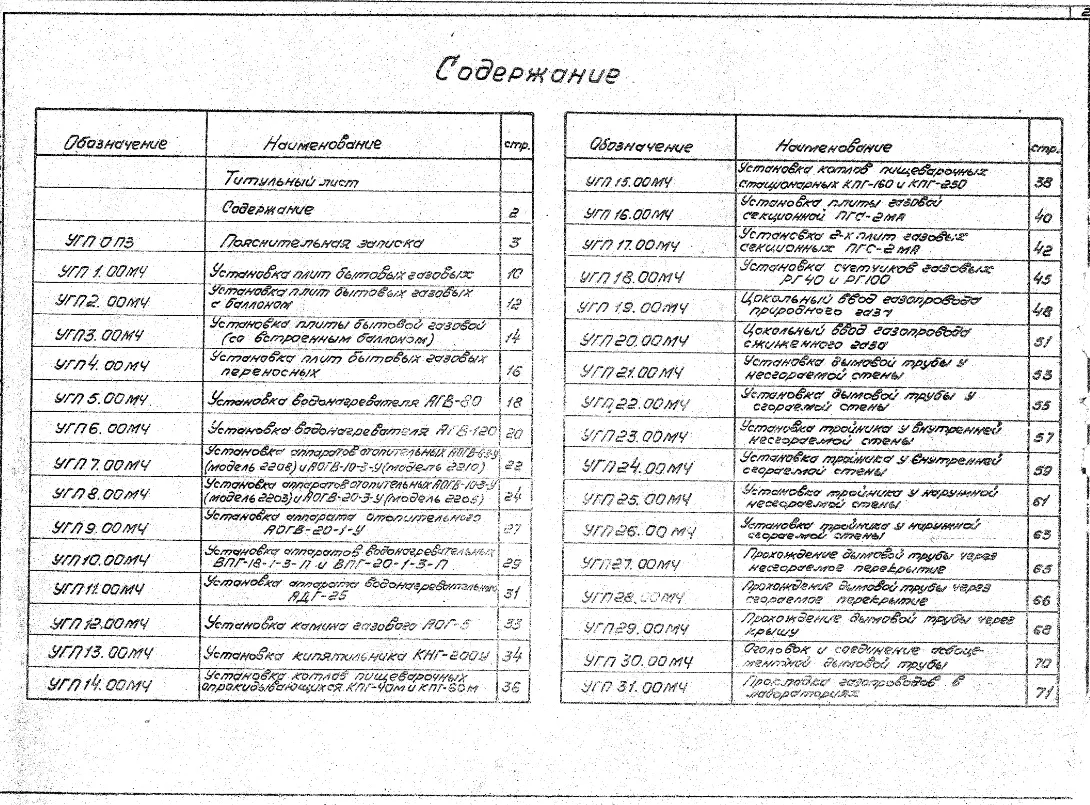 2
Содержание
Обозначение Наименование стр.
Титульный лист
Содержание 2
УГП 0 ПЗ Пояснительная записка 3
УГП 1.00МЧ Установка плит бытовых газовых 10
УГП2.00МЧ Установка плит бытовых газовых
с баллоном 12
УГП3.00МЧ Установка плиты бытовой газовой
(со встроенным баллоном) 14
УГП4.00МЧ Установка плит бытовых газовых
переносных 16
УГП 5.00МЧ Установка водонагревателя АГВ-80 18
УГП6.00МЧ Установка водонагревателя АГВ-120 20
УГП 7.00МЧ Установка аппаратов отопительных
(модель 2208) и АОГВ-10-3-У (модель 2210) 22
УГП 8.00МЧ Установка аппаратов отопительных АОГВ-10-3-У
(модель 2203) и АОГВ-20-3-У (модель 2205) 24
УГП 9.00МЧ Установка аппарата отопительного
АОГВ-20-1-У 27
УГП10.00МЧ Установка аппаратов водонагревательных
ВПГ-18-1-3-П и ВПГ-20-1-3-П 29
УГП11.00МЧ Установка аппарата водонагревательного
АДГ-25 31
УГП 12.00МЧ Установка камина газового АОГ-5 33
УГП13.00МЧ Установка кипятильника КНГ-200У 34
УГП14.00МЧ Установка котлов пищеварочных
опрокидывающихся КПГ-40м и КПГ-60м 36
Обозначение Наименование стр.
УГП 15.00МЧ Установка котлов пищеварочных
стационарных КПГ-160 и КПГ-250 38
УГП 16.00МЧ Установка плиты газовой
секционной ПГС-2МА 40
УГП 17.00МЧ Установка 2-х плит газовых
секционных ПГС-2МА 42
УГП 18.00МЧ Установка счетчиков газовых
РГ40 и РГ100 45
УГП 19.00МЧ Цокольный ввод газопровода
природного газа 48
УГП20.00МЧ Цокольный ввод газопровода
сжиженного газа 51
УГП21.00МЧ Установка дымовой трубы у
несгораемой стены 53
УГП22.00МЧ Установка дымовой трубы у
сгораемой стены 55
УГП23.00МЧ Установка тройника у внутренней
несгораемой стены 57
УГП24.00МЧ Установка тройника у внутренней
сгораемой стены 59
УГП25.00МЧ Установка тройника у наружной
несгораемой стены 61
УГП26.00МЧ Установка тройника у наружной
сгораемой стены 63
УГП27.00МЧ Прохождение дымовой трубы через
несгораемое перекрытие 65
УГП28.00МЧ Прохождение дымовой трубы через
сгораемое перекрытие 66
УГП29.00МЧ Прохождение дымовой трубы через
крышу 68
УГП 30.00МЧ Оголовок и соединение асбоце-
ментной дымовой трубы 70
УГП 31.00МЧ Прокладка газопроводов в
лабораториях 71